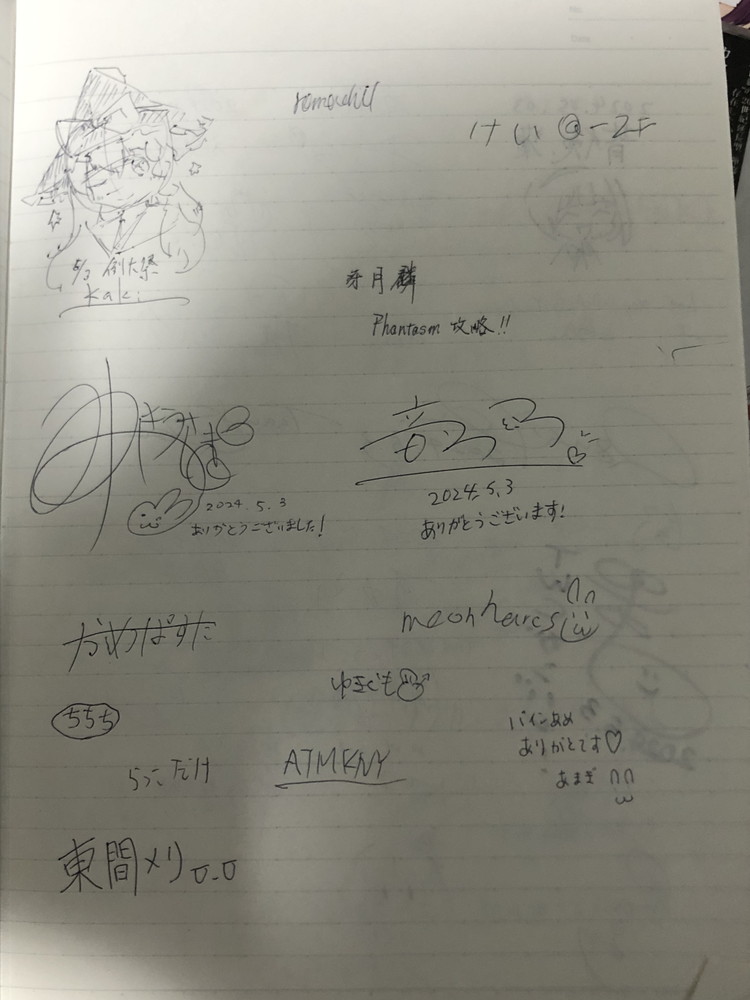 けい@-ZF
5/3 例大祭
Kaki
牙月麟
Phantasm 攻略!!
2024.5.3
ありがとうございました!
2024.5.3
ありがとうございます!
かめぱすた
moonhares
ちちち
パインあめ
ありがとです♡
らっこだけ
ATMKNY
あまぎ
東間メリ